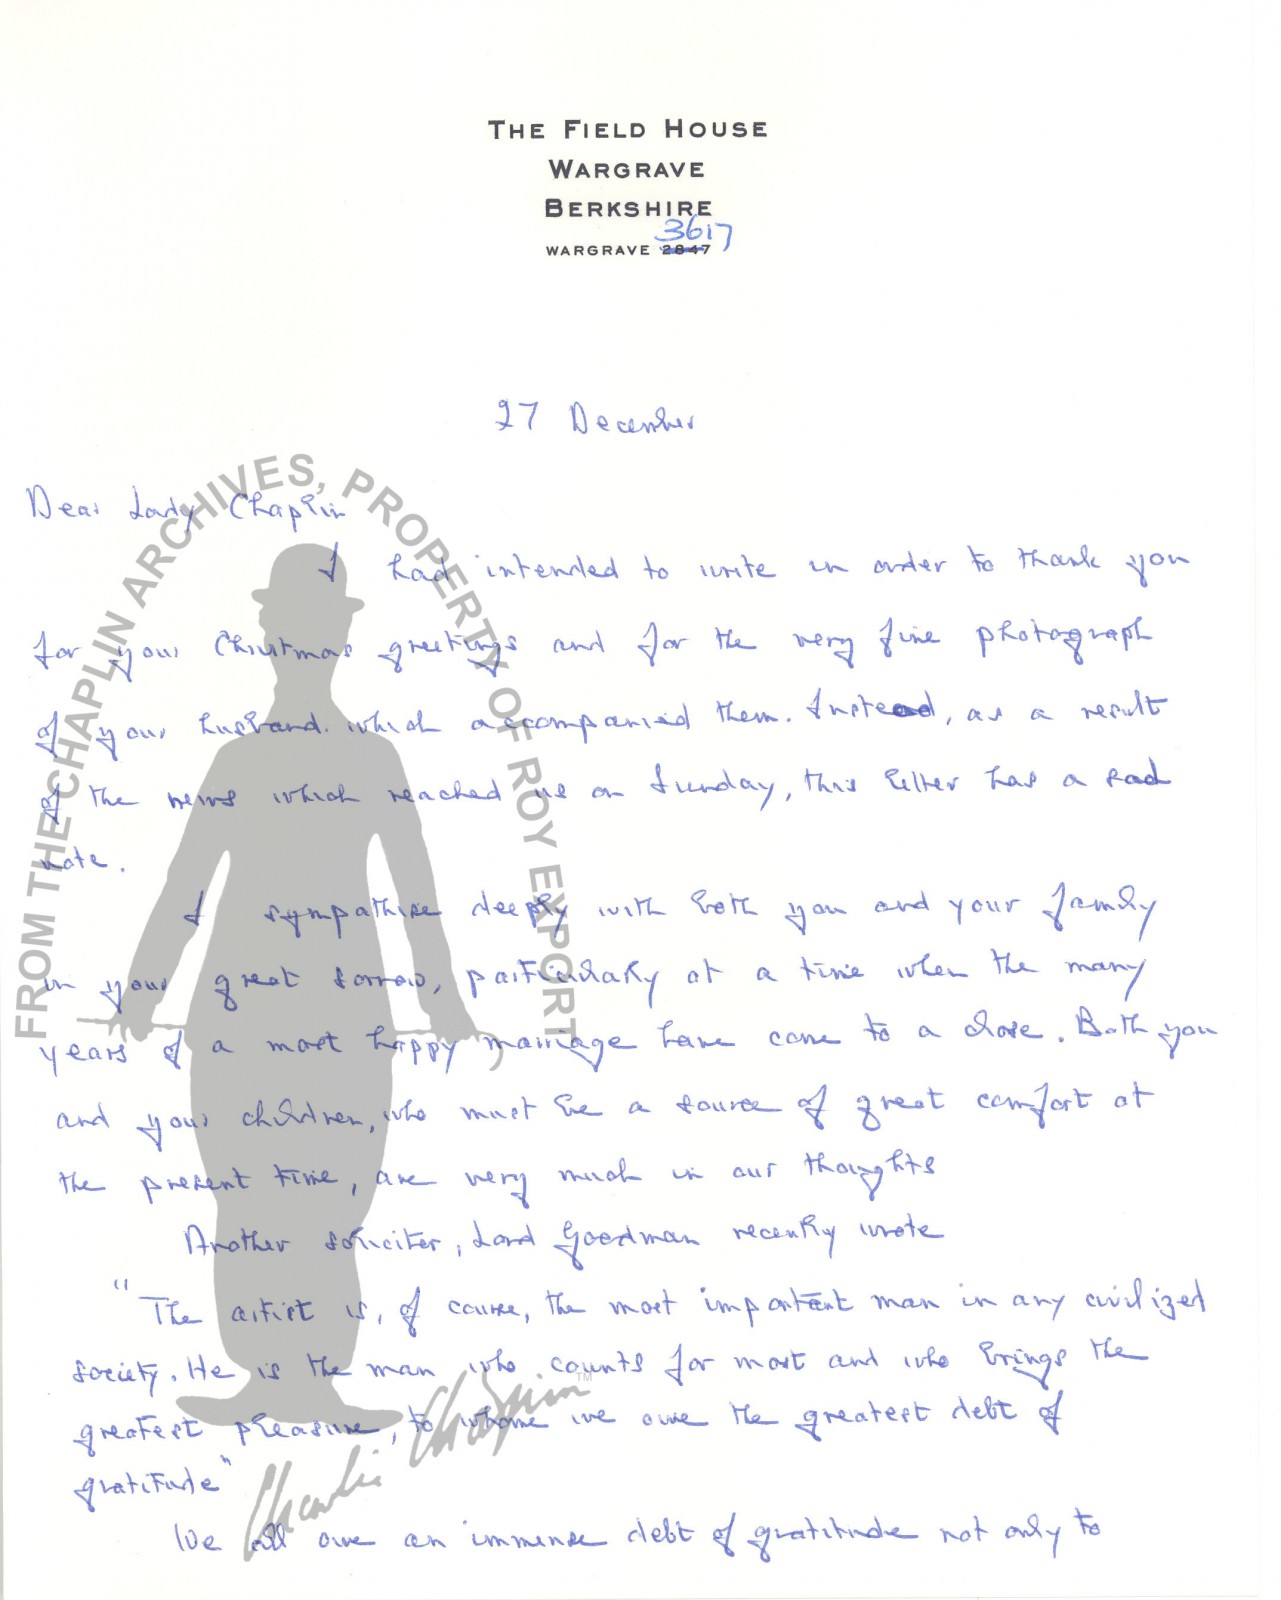 THE FIELD HOUSE
WARGRAVE
BERKSHIRE
3617
WARGRAVE 2847
27 December
Dear Lady Chaplin
I had intended to write in order to thank you
for your Christmas greetings and for the very fine photograph
of your husband which accompanied them. Instead, as a result
of the news which reached us on Sunday, this letter has a sad
note.
I sympathise deeply with both you and your family
in your great sorrow, particularly at a time when the many
years of a most happy marriage have come to a close. Both you
and your children, who must be a source of great comfort at
the present time, are very much in our thoughts
Another solicitor, Lord Goodman recently wrote
"The artist is, of course, the most important man in any civilized
society. He is the man who counts for most and who brings the
greatest pleasure, to whome we owe the greatest debt of
gratitude"
We all owe an immense debt of gratitude not only to
FROM THE CHAPLIN ARCHIVES, PROPERTY OF ROY EXPORT
Charlie Chaplin TM